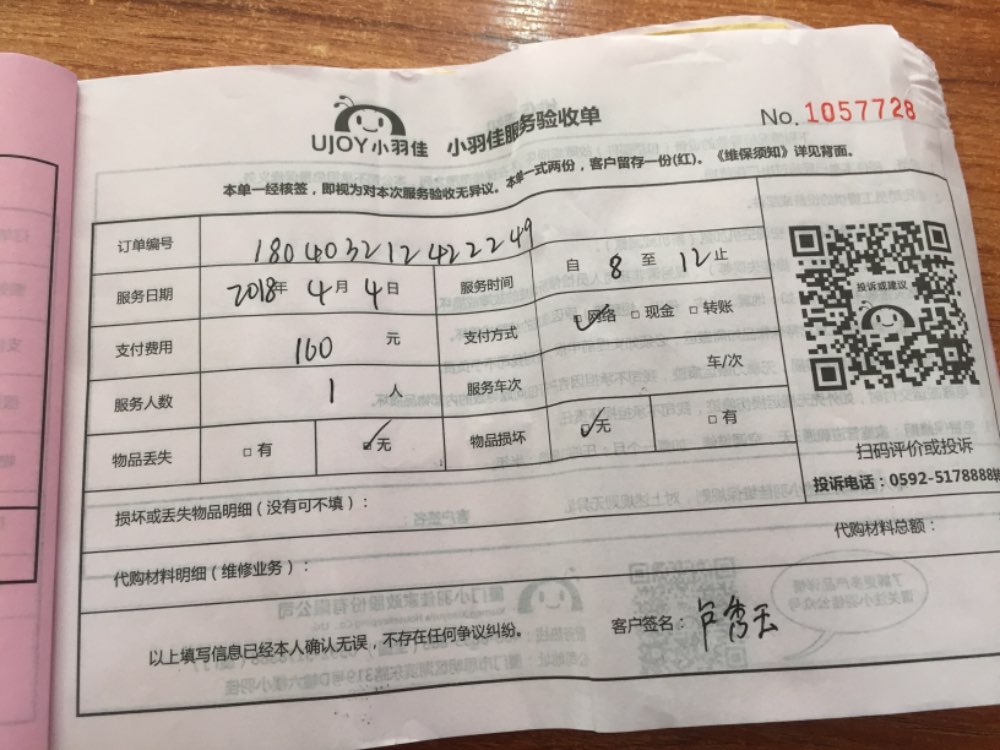 UJOY小羽佳 小羽佳服务验收单 No. 1057728
本单一经核签，即视为对本次服务验收无异议。本单一式两份，客户留存一份(红)。《维保须知》详见背面。
订单编号 180403212422249
服务日期 2018年 4月 4日 服务时间 自 8 至 12 止
支付费用 160 元 支付方式 ☑网络 □现金 □转账
服务人数 1 人 服务车次 车/次
物品丢失 □有 ☑无 物品损坏 ☑无 □有
投诉或建议
扫码评价或投诉
投诉电话：0592-5178888转
损坏或丢失物品明细（没有可不填）：
代购材料明细（维修业务）： 代购材料总额：
以上填写信息已经本人确认无误，不存在任何争议纠纷。 客户签名：卢秀玉